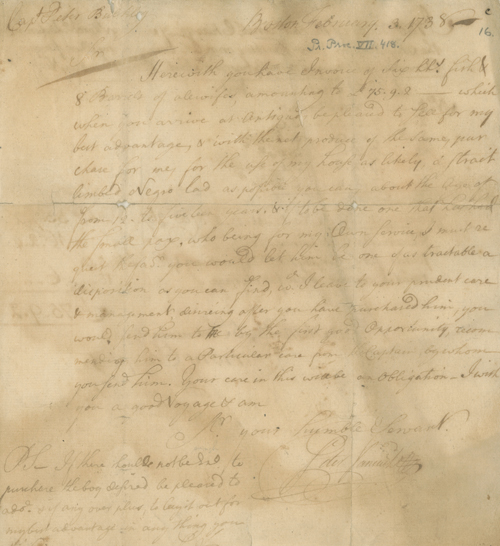 Capt. Peter Buckley
Boston, February 3, 1738
16.
Pr. Prov. VII. 418.
Herewith you have Invoice of Six hhds. fish &
8 Barrels of alewifes amounting to £75.9.2 — which
when you arrive at Antigua be pleased to Sell for my
best advantage, & with the nett produce of the Same, pur
chase for me, for the use of my house, as likely a Strait
limbed Negro lad as possible you can, about the age of
from 12 to fiveteen years, & if to be done one that has had
the Small pox, who being for my Own Service, I must re
quest the favr. you would let him be one of as tractable a
disposition as you can find, wch. I leave to your prudent care
& management desireing after you have purchased him, you
would Send him to me by the first good Opportunity, recom
mending him to a Particular care from the Captain by whom
you send him. Your care in this will be an Obligation — I wish
you a good Voyage & am
Sr. your Humble Servant.
Peter
PS — If there should not be to
purchase the boy desired be pleased to
add, & if any over plus, to lay it out for
my best advantage in any thing you